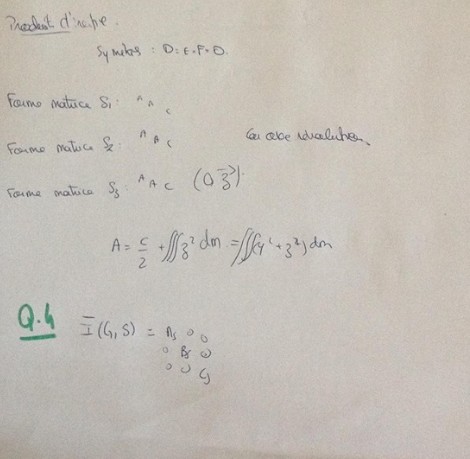 Produit d'inertie.
Symétries : D = E = F = 0.
Forme matrice S₁ : A A C
Forme matrice S₂ : A B C
Forme matrice S₃ : A A C (O z⃗).
A = C/2 + ∭ z² dm = ∭(y² + z²) dm
Q.4 I̿ (G, S) = A₅ 0 0
0 B₅ 0
0 0 C₅